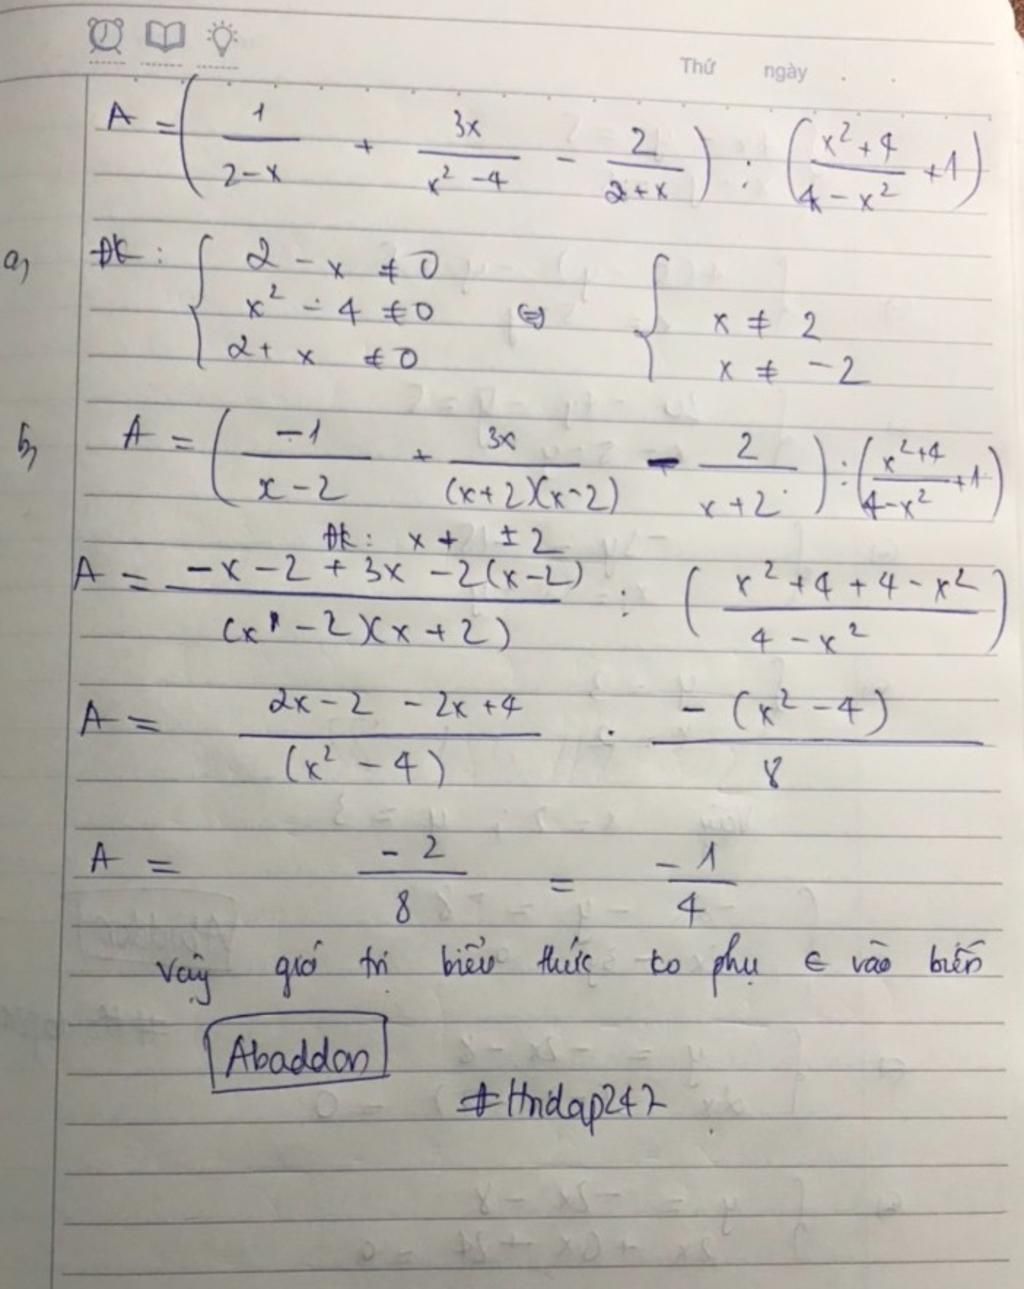 Thứ ngày
A = ( 1/(2-x) + 3x/(x² - 4) - 2/(2+x) ) : ( (x²+4)/(4-x²) + 1 )
a, ĐK : { 2 - x ≠ 0 ; x² - 4 ≠ 0 ; 2 + x ≠ 0 ⇔ { x ≠ 2 ; x ≠ -2
b, A = ( -1/(x-2) + 3x/((x+2)(x-2)) - 2/(x+2) ) : ( (x²+4)/(4-x²) + 1 )
ĐK: x ≠ ±2
A = (-x-2+3x-2(x-2))/((x-2)(x+2)) : ( (x²+4+4-x²)/(4-x²) )
A = (2x-2-2x+4)/(x²-4) . -(x²-4)/8
A = -2/8 = -1/4
Vậy giá trị biểu thức ko phụ ∈ vào biến
Abaddon
#Hndap247